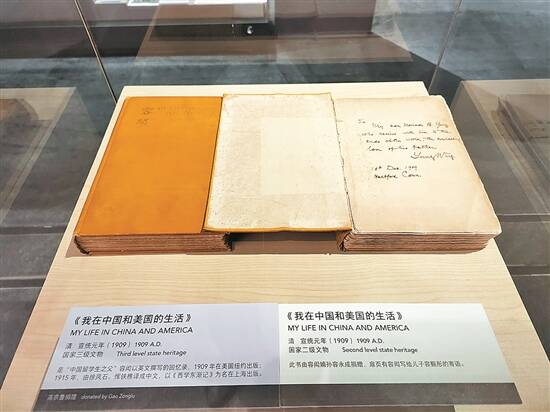 To My son Morrison B. Yung
who carries with him to the
ends of the world, the
love of his father.
Yung Wing
Dec. 1909
Hartford Conn.
《我在中国和美国的生活》
MY LIFE IN CHINA AND AMERICA
清 宣统元年（1909）1909 A.D.
国家三级文物 Third level state heritage
是“中国留学生之父”容闳以英文撰写的回忆录，1909年在美国纽约出版。
1915年，由徐凤石、恽铁樵译成中文，以《西学东渐记》为名在上海出版。
高宗鲁捐赠 donated by Gao Zonglu
《我在中国和美国的生活》
MY LIFE IN CHINA AND AMERICA
清 宣统元年（1909）1909 A.D.
国家二级文物 Second level state heritage
此书由容闳嫡孙容永成捐赠，扉页有容闳写给儿子容觐彤的寄语。